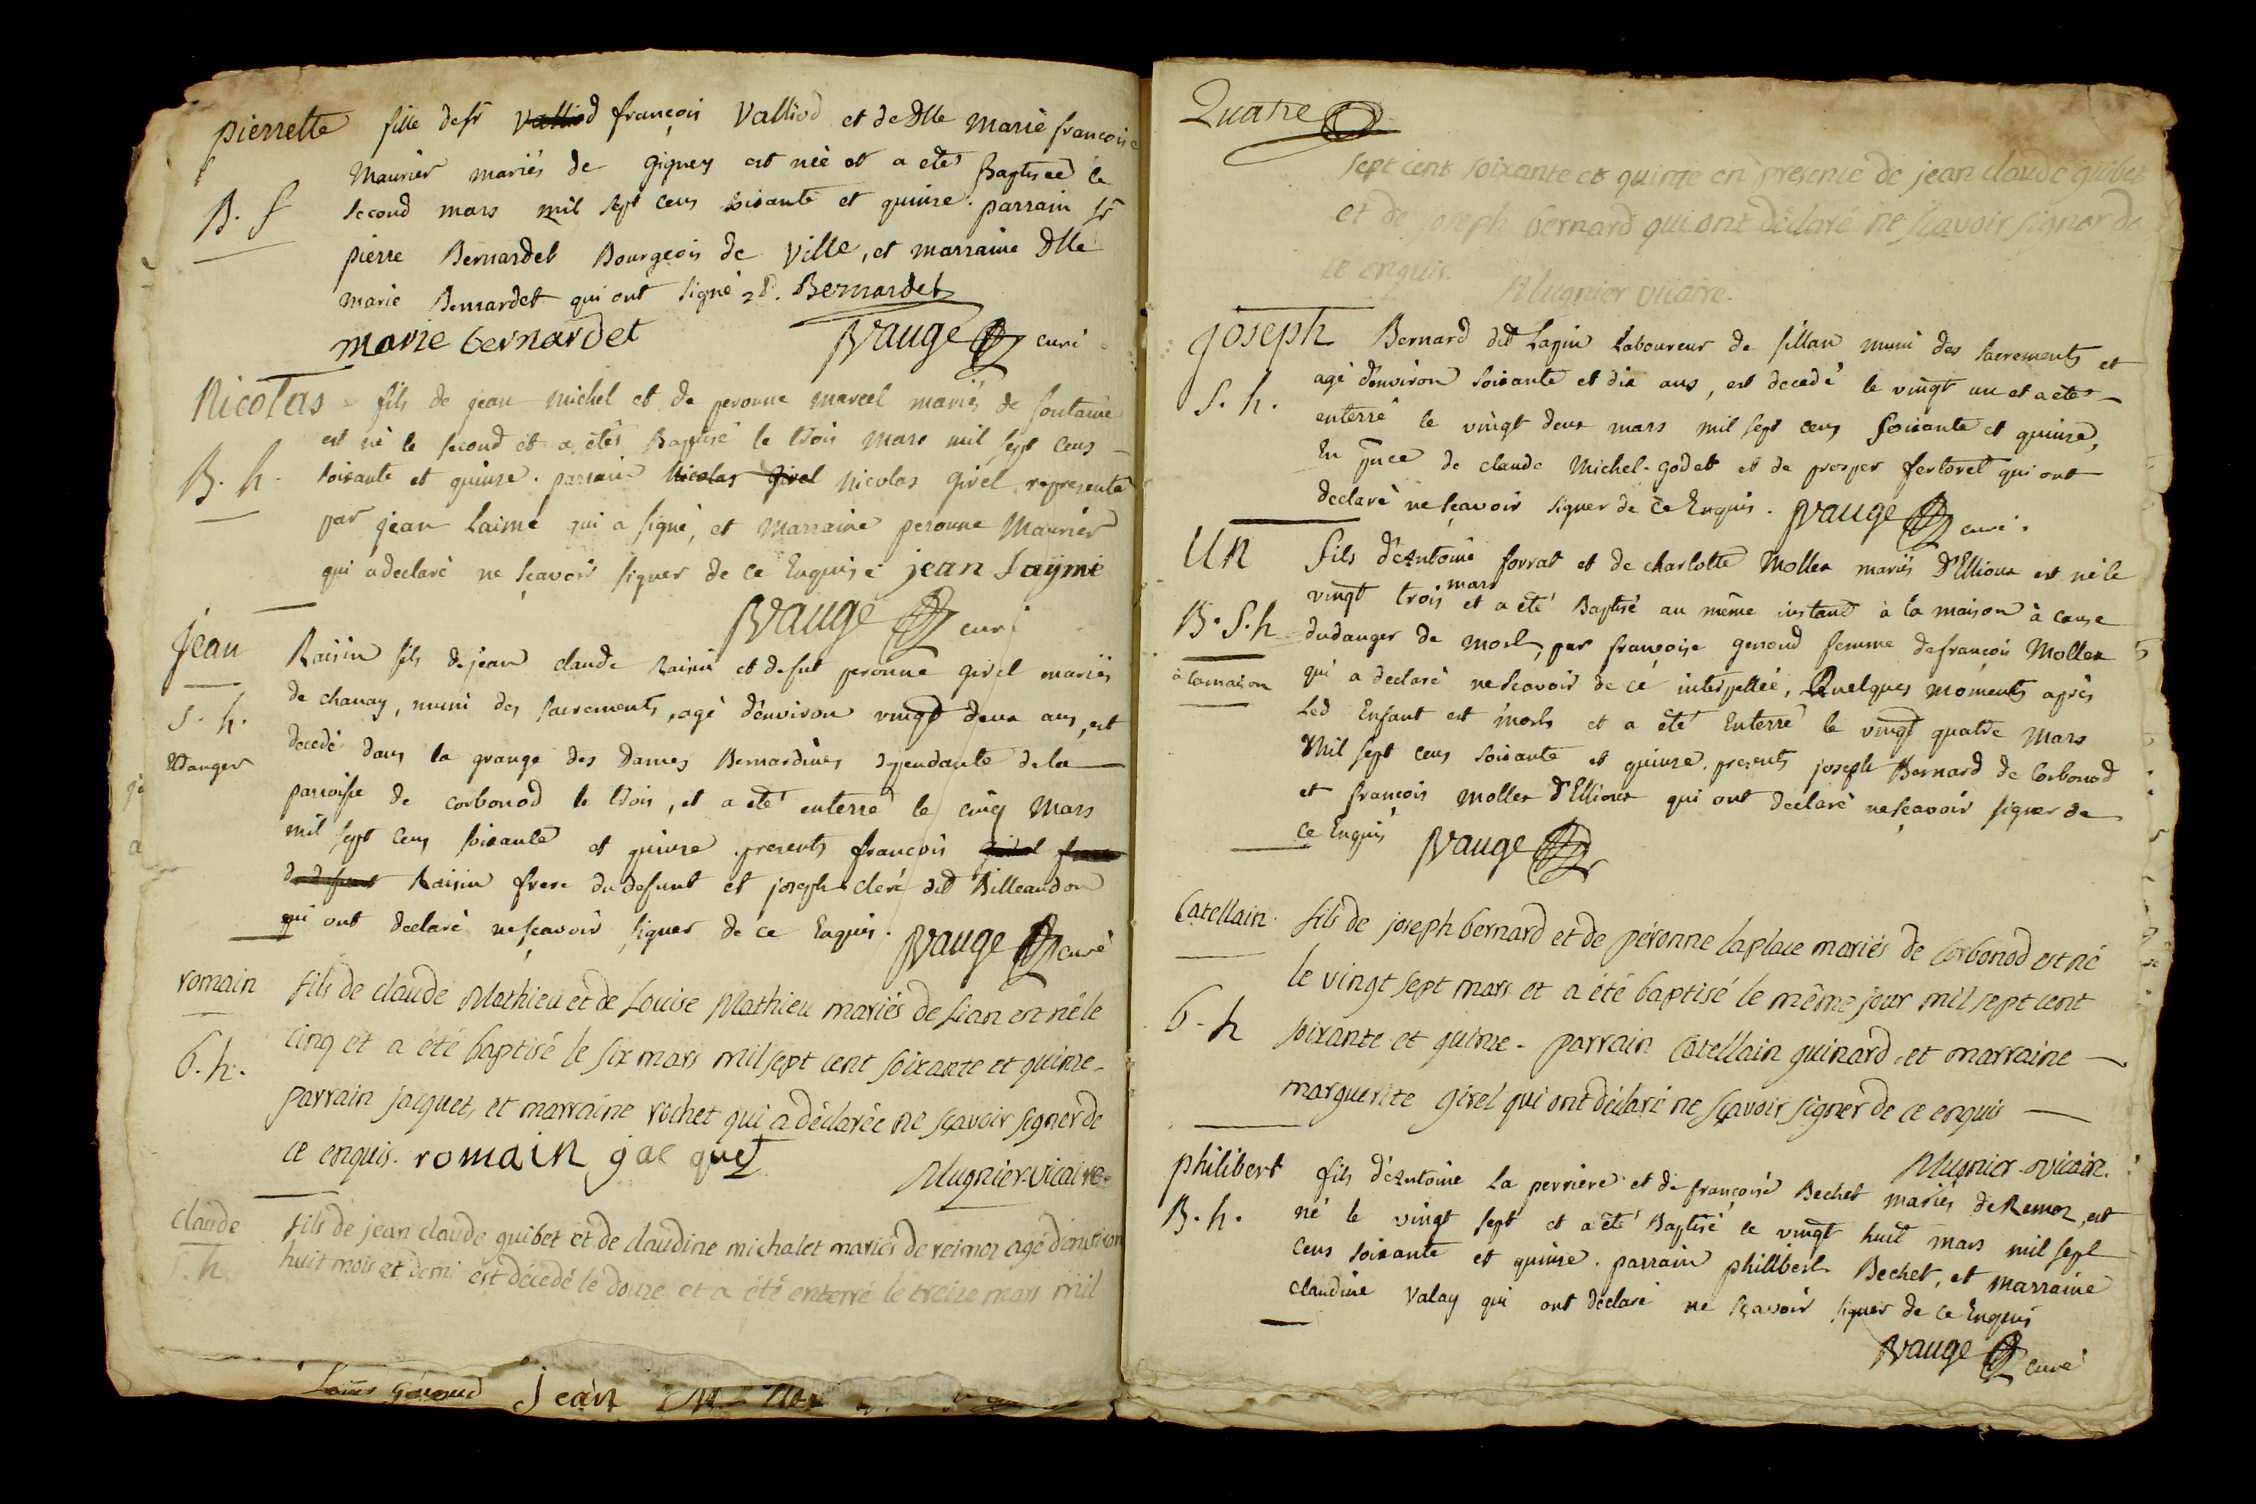 pierrette fille de sr valliod françois Valliod et de Dlle marie françoise
Maurier mariés de gignez est née et a eté Baptisée le
B. f second mars mil sept cens soixante et quinze. parrain sr
pierre Bernardet Bourgeois de Ville, et marraine Dlle
marie Bernardet qui ont signé Bernardet
marie bernardet Vauge curé
Nicolas fils de jean michel et de peronne marcel mariés de fontaine
est né le second et a étés Baptisé le trois mars mil sept cens
B. h. soixante et quinze. parrain Nicolas girel nicolas girel representé
par jean Laimé qui a signé, et Marraine peronne Maurier
qui a declaré ne sçavoir signer de ce Enquise jean Laÿmé
Vauge curé
jean Raisin fils de jean claude Raisin et de fut peronne girel mariés
S. h. de chanay, muni des sacrements, agé d'environ vingt deux ans, est
Etranger decedé dans la grange des Dames Bernardines dependante de la
parroisse de corbonod le trois, et a eté enterré le cinq Mars
mil sept cens soixante et quinze. presents françois girel frere
du defunt Raisin frere du defunt et joseph cleré dit Billeaudon
qui ont declaré ne sçavoir signer de ce Enquis. Vauge curé
romain fils de claude Mathieu et de Louise Mathieu mariés de sian est né le
cinq et a été baptisé le six mars mil sept cent soixante et quinze.
b. h. parrain jacquet, et marraine rochet qui a déclarée ne sçavoir signer de
ce enquis. romain jac quet Mugnier-vicaire
claude fils de jean claude guibet et de claudine michalet mariés de reimoz agé d'environ
S. h. huit mois et demi est décedé le douze et a été enterré le treize mars mil
jean
Quatre
sept cent soixante et quinze en presence de jean claude guibet
et de joseph bernard qui ont déclaré ne sçavoir signer de
ce enquis. Mugnier vicaire.
joseph Bernard dit Lagin Laboureur de sillan muni des sacrements et
S. h. agé d'environ soixante et dix ans, est decedé le vingt un et a eté
enterré le vingt deux mars mil sept cens soixante et quinze,
En pnce de claude Michel-godet et de prosper fertoret qui ont
declaré ne sçavoir signer de ce Enquis. Vauge curé.
Un fils d'Antoine forrat et de charlotte Mollex mariés d'Ellioux est né le
vingt trois mars et a été Baptisé au même instant à la maison à cause
B. S. h du danger de mort, par françoise genoud femme de françois Mollex
à la maison qui a declaré ne scavoir de ce interpellée, Quelques moments après
Led Enfant est mort et a été Enterré le vingt quatre Mars
Mil sept cens soixante et quinze. presents joseph Bernard de Corbonod
et françois mollex d'Ellioux qui ont declaré ne sçavoir signer de
ce Enquis Vauge
Catellain. fils de joseph bernard et de péronne laplace mariés de corbonod est né
le vingt sept mars et a été baptisé le même jour mil sept cent
b - h soixante et quinze - parrain Catellain guinard. et marraine
marguerite girel qui ont déclaré ne sçavoir signer de ce enquis
Mugnier-vicaire.
philibert fils d'Antoine La perriere et de françoise Bechet mariés de Remoz, est
B. h. né le vingt sept et a été Baptisé le vingt huit mars mil sept
cens soixante et quinze. parrain phillibert Bechet, et marraine
claudine Valay qui ont declaré ne sçavoir signer de ce Enquis
Vauge curé